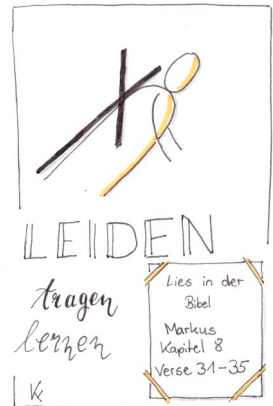 LEIDEN
tragen
lernen
Lies in der
Bibel
Markus
Kapitel 8
Verse 31-35